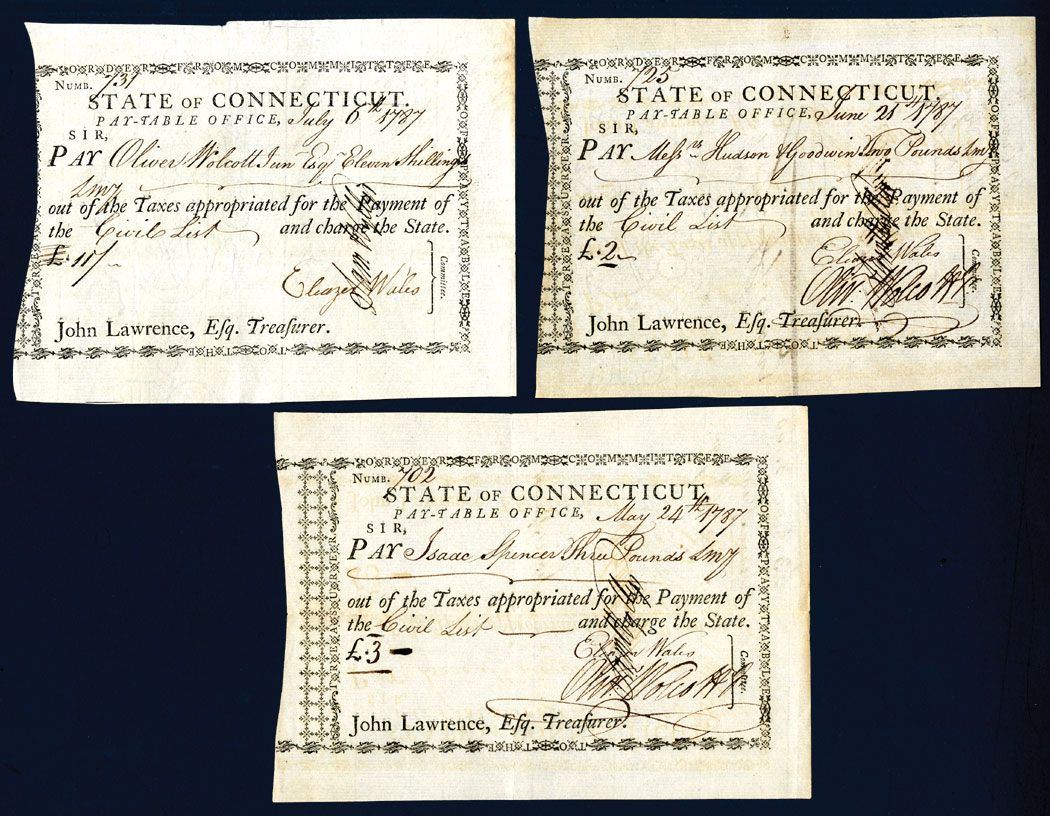 ORDER FROM COMMITTEE
OF PAY TABLE
TO THE
TREASURER
NUMB. 731
STATE OF CONNECTICUT.
PAY-TABLE OFFICE, July 6th 1787
SIR,
PAY Oliver Wolcott Jun Esqr Eleven Shillings
Lmy
out of the Taxes appropriated for the Payment of
the Civil List and charge the State.
£ 11/
Eleazer Wales
Committee.
John Lawrence, Esq. Treasurer.
ORDER FROM COMMITTEE
OF PAY TABLE
TO THE
TREASURER
NUMB. 725
STATE OF CONNECTICUT.
PAY-TABLE OFFICE, June 21st 1787
SIR,
PAY Messrs Hudson & Goodwin Two Pounds Lmy
out of the Taxes appropriated for the Payment of
the Civil List and charge the State.
£.2
Eleazer Wales
Olivr Wolcott Jr
Committee.
John Lawrence, Esq. Treasurer.
ORDER FROM COMMITTEE
OF PAY TABLE
TO THE
TREASURER
NUMB. 702
STATE OF CONNECTICUT.
PAY-TABLE OFFICE, May 24th 1787
SIR,
PAY Isaac Spencer Three Pounds Lmy
out of the Taxes appropriated for the Payment of
the Civil List and charge the State.
£.3
Eleazer Wales
Olivr Wolcott Jr
Committee.
John Lawrence, Esq. Treasurer.